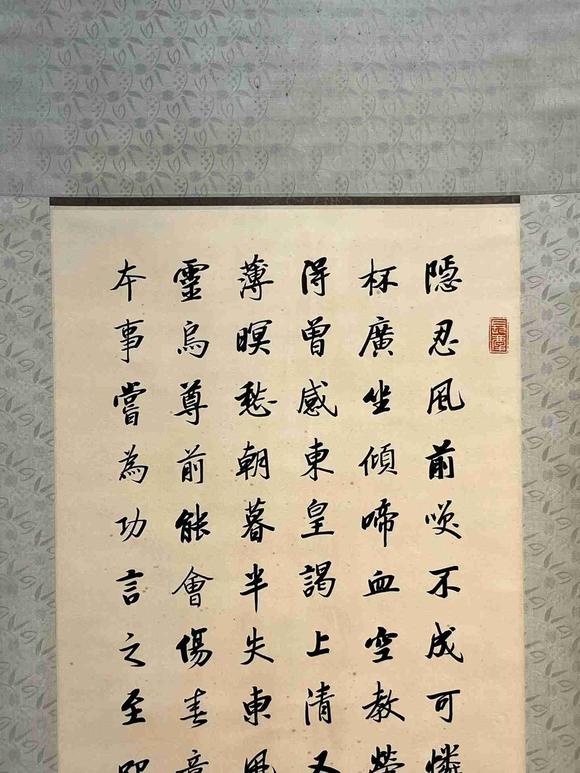 隱忍風前笑不成可憐
杯廣坐傾啼血空教
得曾感東皇謁上清又
薄暝愁朝暮半失東風
靈烏尊前能會傷春意
本事嘗為功言之至